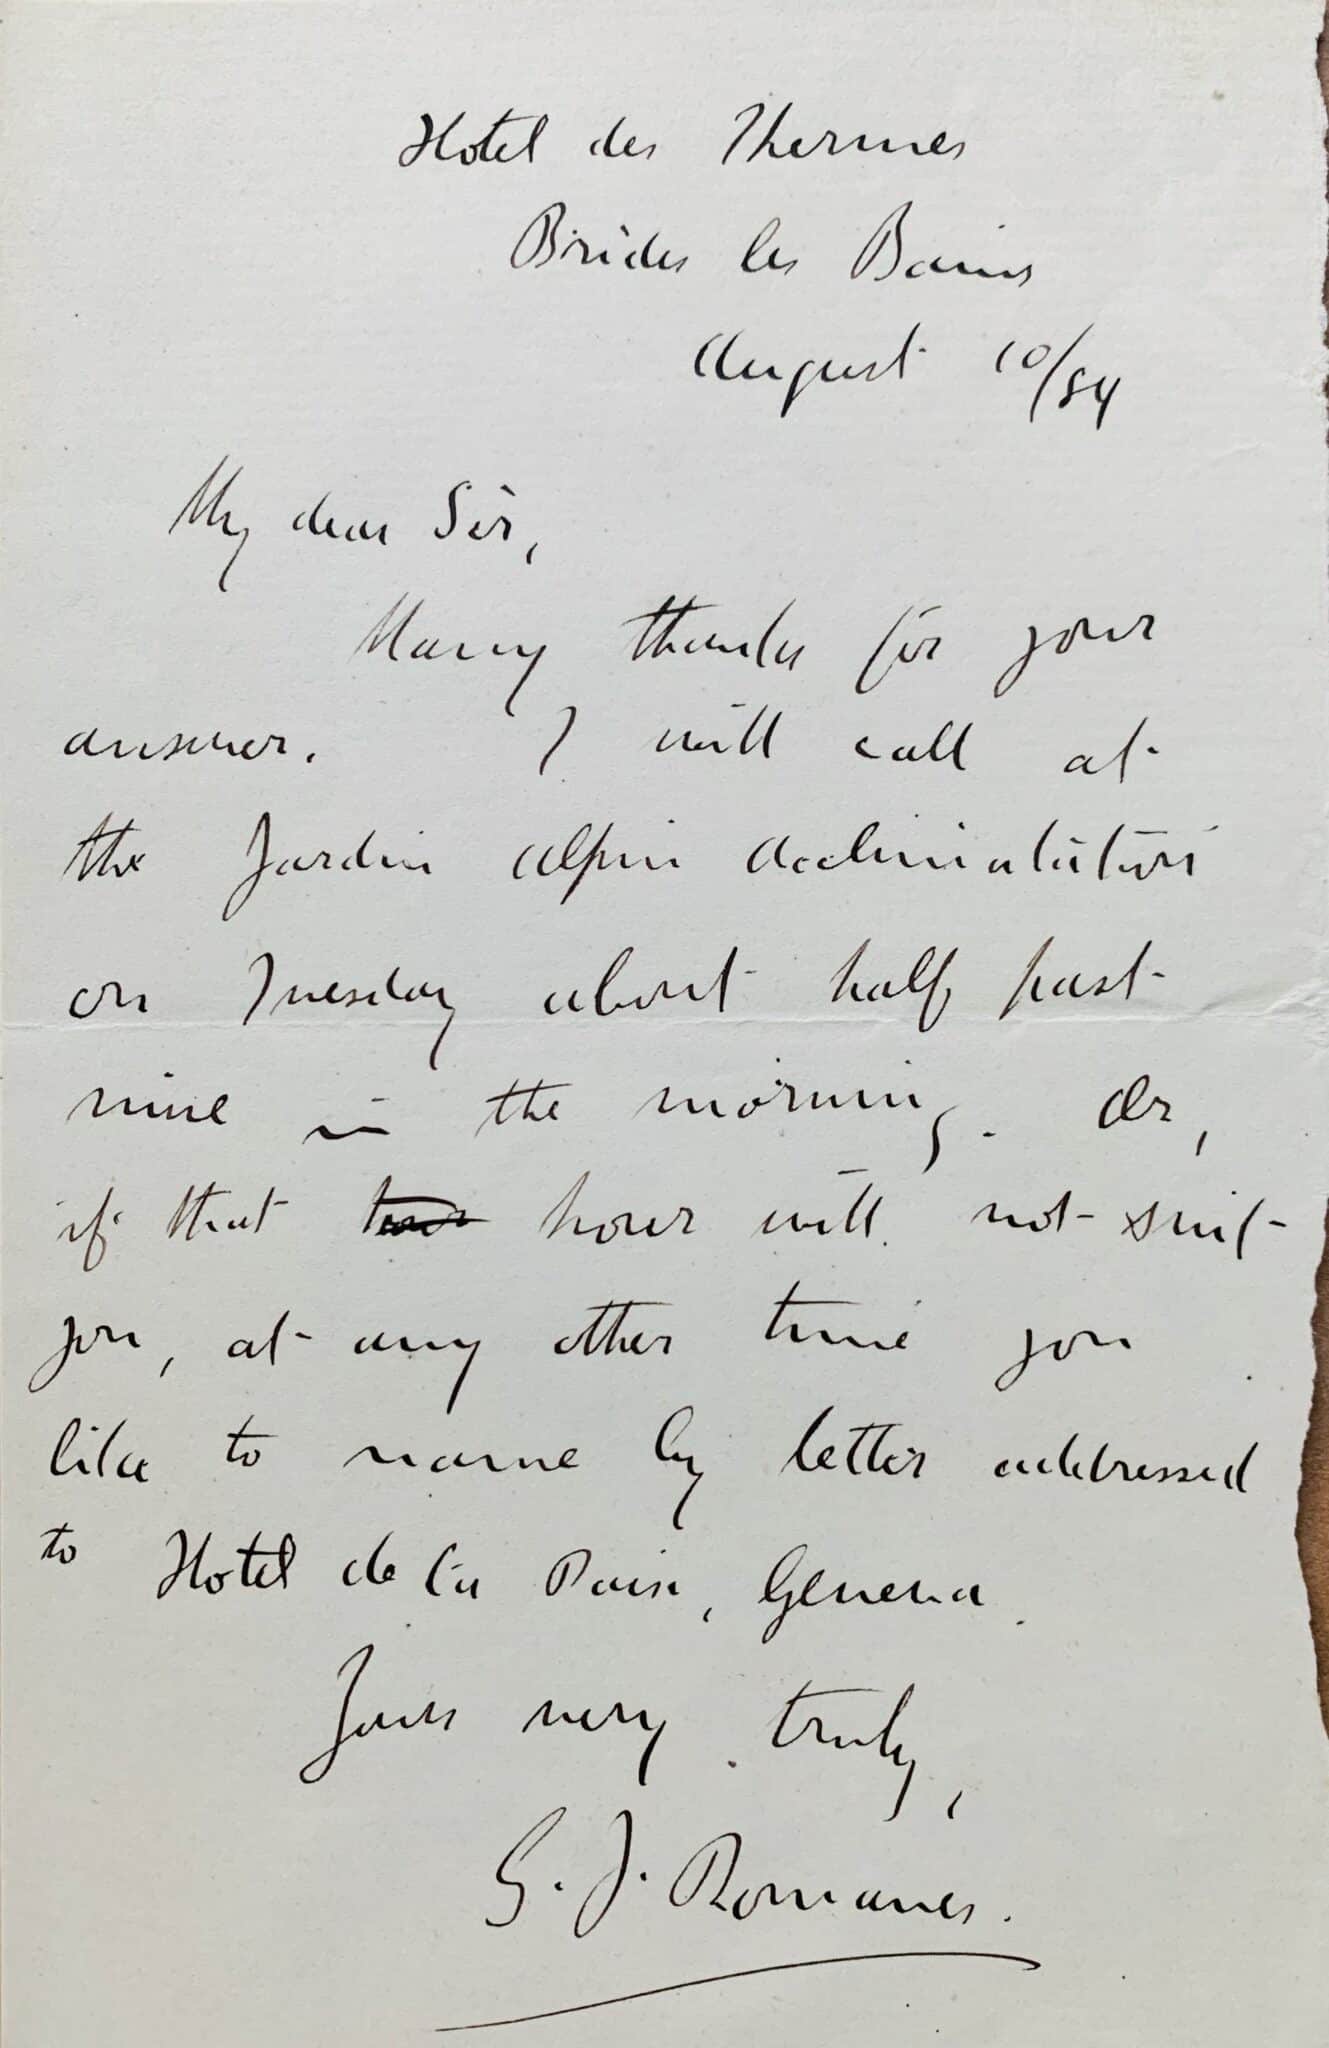 Hotel des Thermes
Brides les Bains
August 10/84
My dear Sir,
Many thanks for your
answer. I will call at
the Jardin alpin acclimatation
on Tuesday about half past
nine in the morning. Or,
if that hour will not suit
you, at any other time you
like to name by letter addressed
to Hotel de la Paix, Geneva.
Yours very truly,
G. J. Romanes.